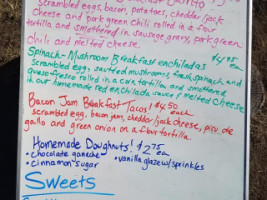 scrambled eggs, bacon, potatoes, cheddar/jack
cheese and pork green chili rolled in a flour
tortilla and smothered in sausage gravy, pork green
chili and melted cheese.
Spinach-Mushroom Breakfast enchiladas $4.75
scrambled egg, sauteed mushrooms, fresh spinach and
queso fresco rolled in a corn tortilla and smothered
in our homemade red enchilada sauce & melted cheese
Bacon Jam Breakfast Tacos! $4.50 each
scrambled egg, bacon jam, cheddar/jack cheese, pico de
gallo and green onion on a flour tortilla
Homemade Doughnuts! $2.75 ea
• chocolate ganache • vanilla glaze w/sprinkles
• cinnamon sugar
Sweets